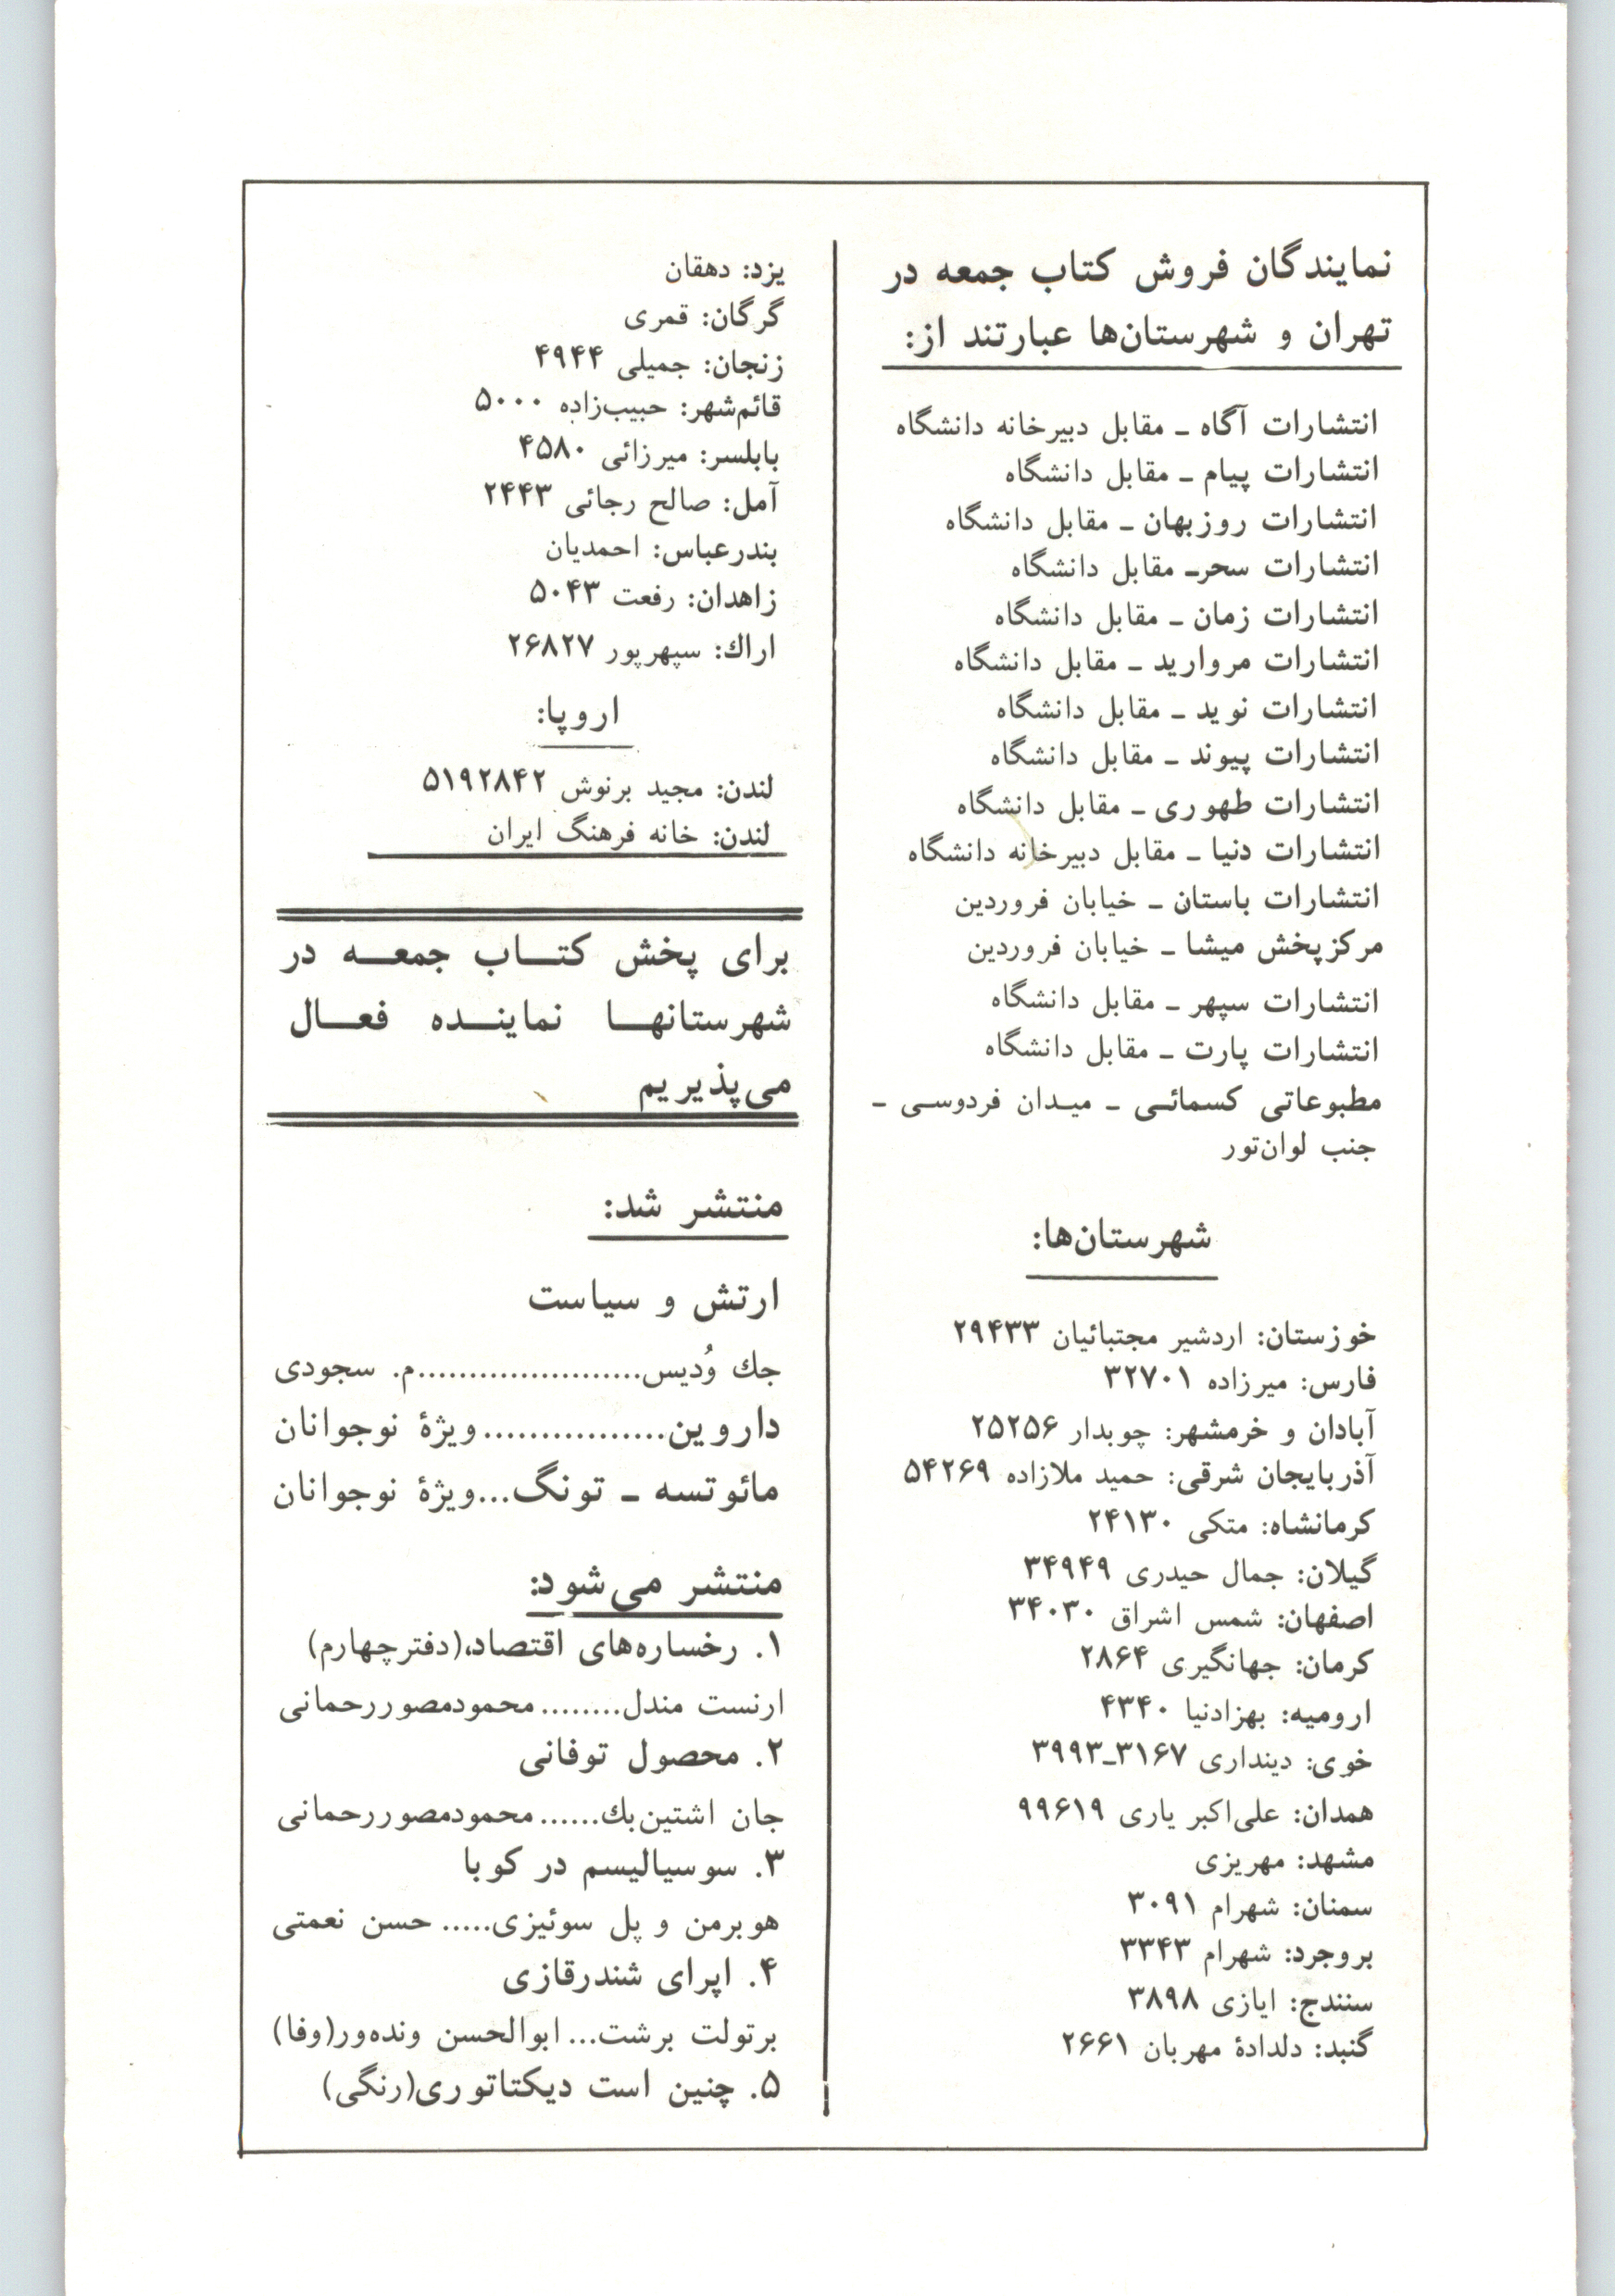 نمایندگان فروش کتاب جمعه در
تهران و شهرستان‌ها عبارتند از:
انتشارات آگاه ــ مقابل دبیرخانه دانشگاه
انتشارات پیام ــ مقابل دانشگاه
انتشارات روزبهان ــ مقابل دانشگاه
انتشارات سحرــ مقابل دانشگاه
انتشارات زمان ــ مقابل دانشگاه
انتشارات مروارید ــ مقابل دانشگاه
انتشارات نوید ــ مقابل دانشگاه
انتشارات پیوند ــ مقابل دانشگاه
انتشارات طهوری ــ مقابل دانشگاه
انتشارات دنیا ــ مقابل دبیرخانه دانشگاه
انتشارات باستان ــ خیابان فروردین
مرکزپخش میشا ــ خیابان فروردین
انتشارات سپهر ــ مقابل دانشگاه
انتشارات پارت ــ مقابل دانشگاه
مطبوعاتی کسمائی ــ میدان فردوسی ــ
جنب لوان‌تور
شهرستان‌ها:
خوزستان: اردشیر مجتبائیان ۲۹۴۳۳
فارس: میرزاده ۳۲۷۰۱
آبادان و خرمشهر: چوبدار ۲۵۲۵۶
آذربایجان شرقی: حمید ملازاده ۵۴۲۶۹
کرمانشاه: متکی ۲۴۱۳۰
گیلان: جمال حیدری ۳۴۹۴۹
اصفهان: شمس اشراق ۳۴۰۳۰
کرمان: جهانگیری ۲۸۶۴
ارومیه: بهزادنیا ۴۳۴۰
خوی: دینداری ۳۱۶۷ــ۳۹۹۳
همدان: علی‌اکبر یاری ۹۹۶۱۹
مشهد: مهریزی
سمنان: شهرام ۳۰۹۱
بروجرد: شهرام ۳۳۴۳
سنندج: ایازی ۳۸۹۸
گنبد: دلدادهٔ مهربان ۲۶۶۱
یزد: دهقان
گرگان: قمری
زنجان: جمیلی ۴۹۴۴
قائم‌شهر: حبیب‌زاده ۵۰۰۰
بابلسر: میرزائی ۴۵۸۰
آمل: صالح رجائی ۲۴۴۳
بندرعباس: احمدیان
زاهدان: رفعت ۵۰۴۳
اراك: سپهرپور ۲۶۸۲۷
اروپا:
لندن: مجید برنوش ۵۱۹۲۸۴۲
لندن: خانه فرهنگ ایران
برای پخش کتاب جمعه در
شهرستانها نماینده فعال
می‌پذیریم
منتشر شد:
ارتش و سیاست
جك وُدیس......................م. سجودی
داروین................ویژهٔ نوجوانان
مائوتسه ــ تونگ...ویژهٔ نوجوانان
منتشر می‌شود:
۱. رخساره‌های اقتصاد،(دفترچهارم)
ارنست مندل........محمودمصوررحمانی
۲. محصول توفانی
جان اشتین‌بك......محمودمصوررحمانی
۳. سوسیالیسم در کوبا
هوبرمن و پل سوئیزی.....حسن نعمتی
۴. اپرای شندرقازی
برتولت برشت...ابوالحسن ونده‌ور(وفا)
۵. چنین است دیکتاتوری(رنگی)